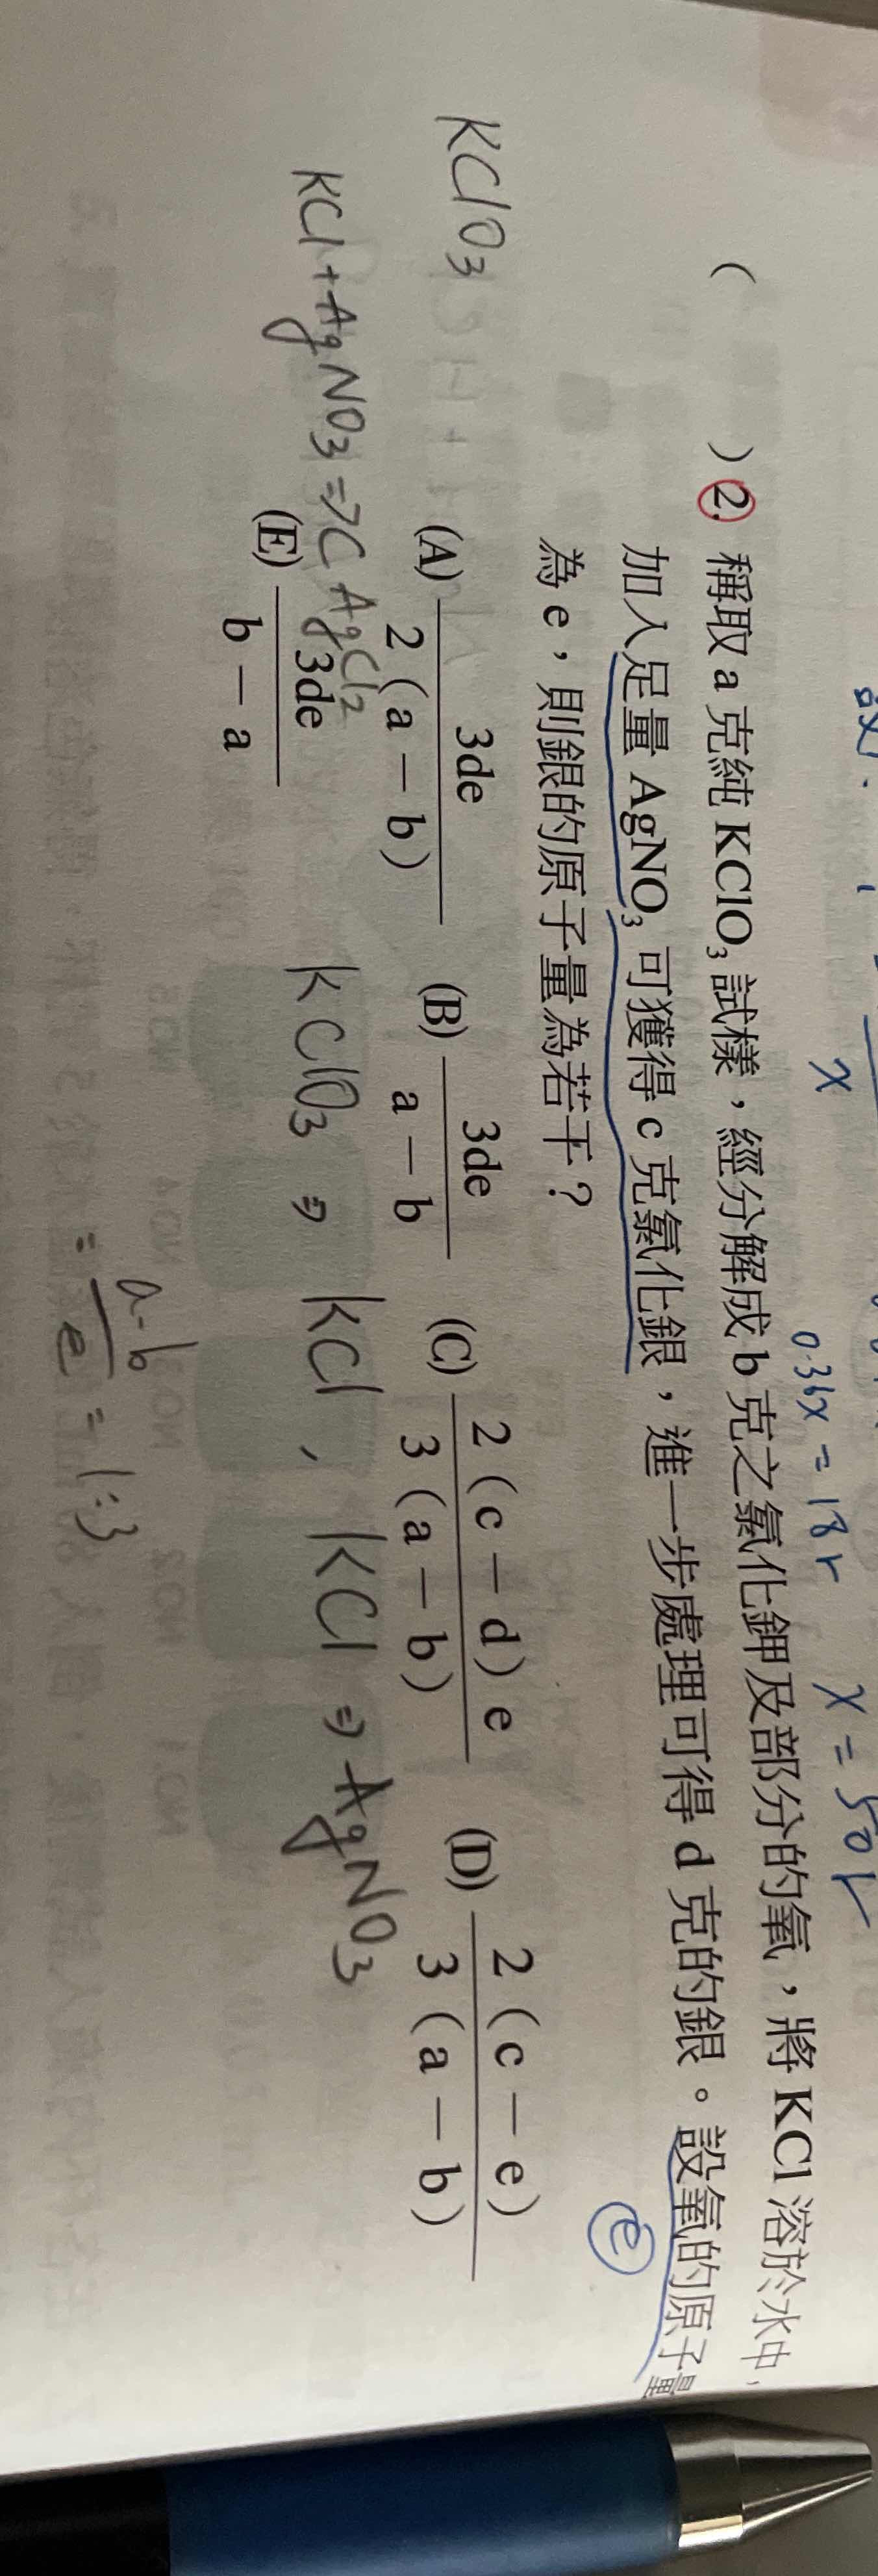 設.
x
0.36x = 18r
x = 50r
( ) 2. 稱取 a 克純 KClO₃ 試樣，經分解成 b 克之氯化鉀及部分的氧，將 KCl 溶於水中，
加入足量 AgNO₃ 可獲得 c 克氯化銀，進一步處理可得 d 克的銀。設氧的原子量
為 e，則銀的原子量為若干？
e
(A) 3de / 2(a－b) (B) 3de / a－b (C) 2(c－d)e / 3(a－b) (D) 2(c－e) / 3(a－b)
(E) 3de / b－a
KClO₃
KCl + AgNO₃ => C AgCl₂
KClO₃ ⇒ KCl , KCl ⇒ AgNO₃
= a-b / e = 1:3